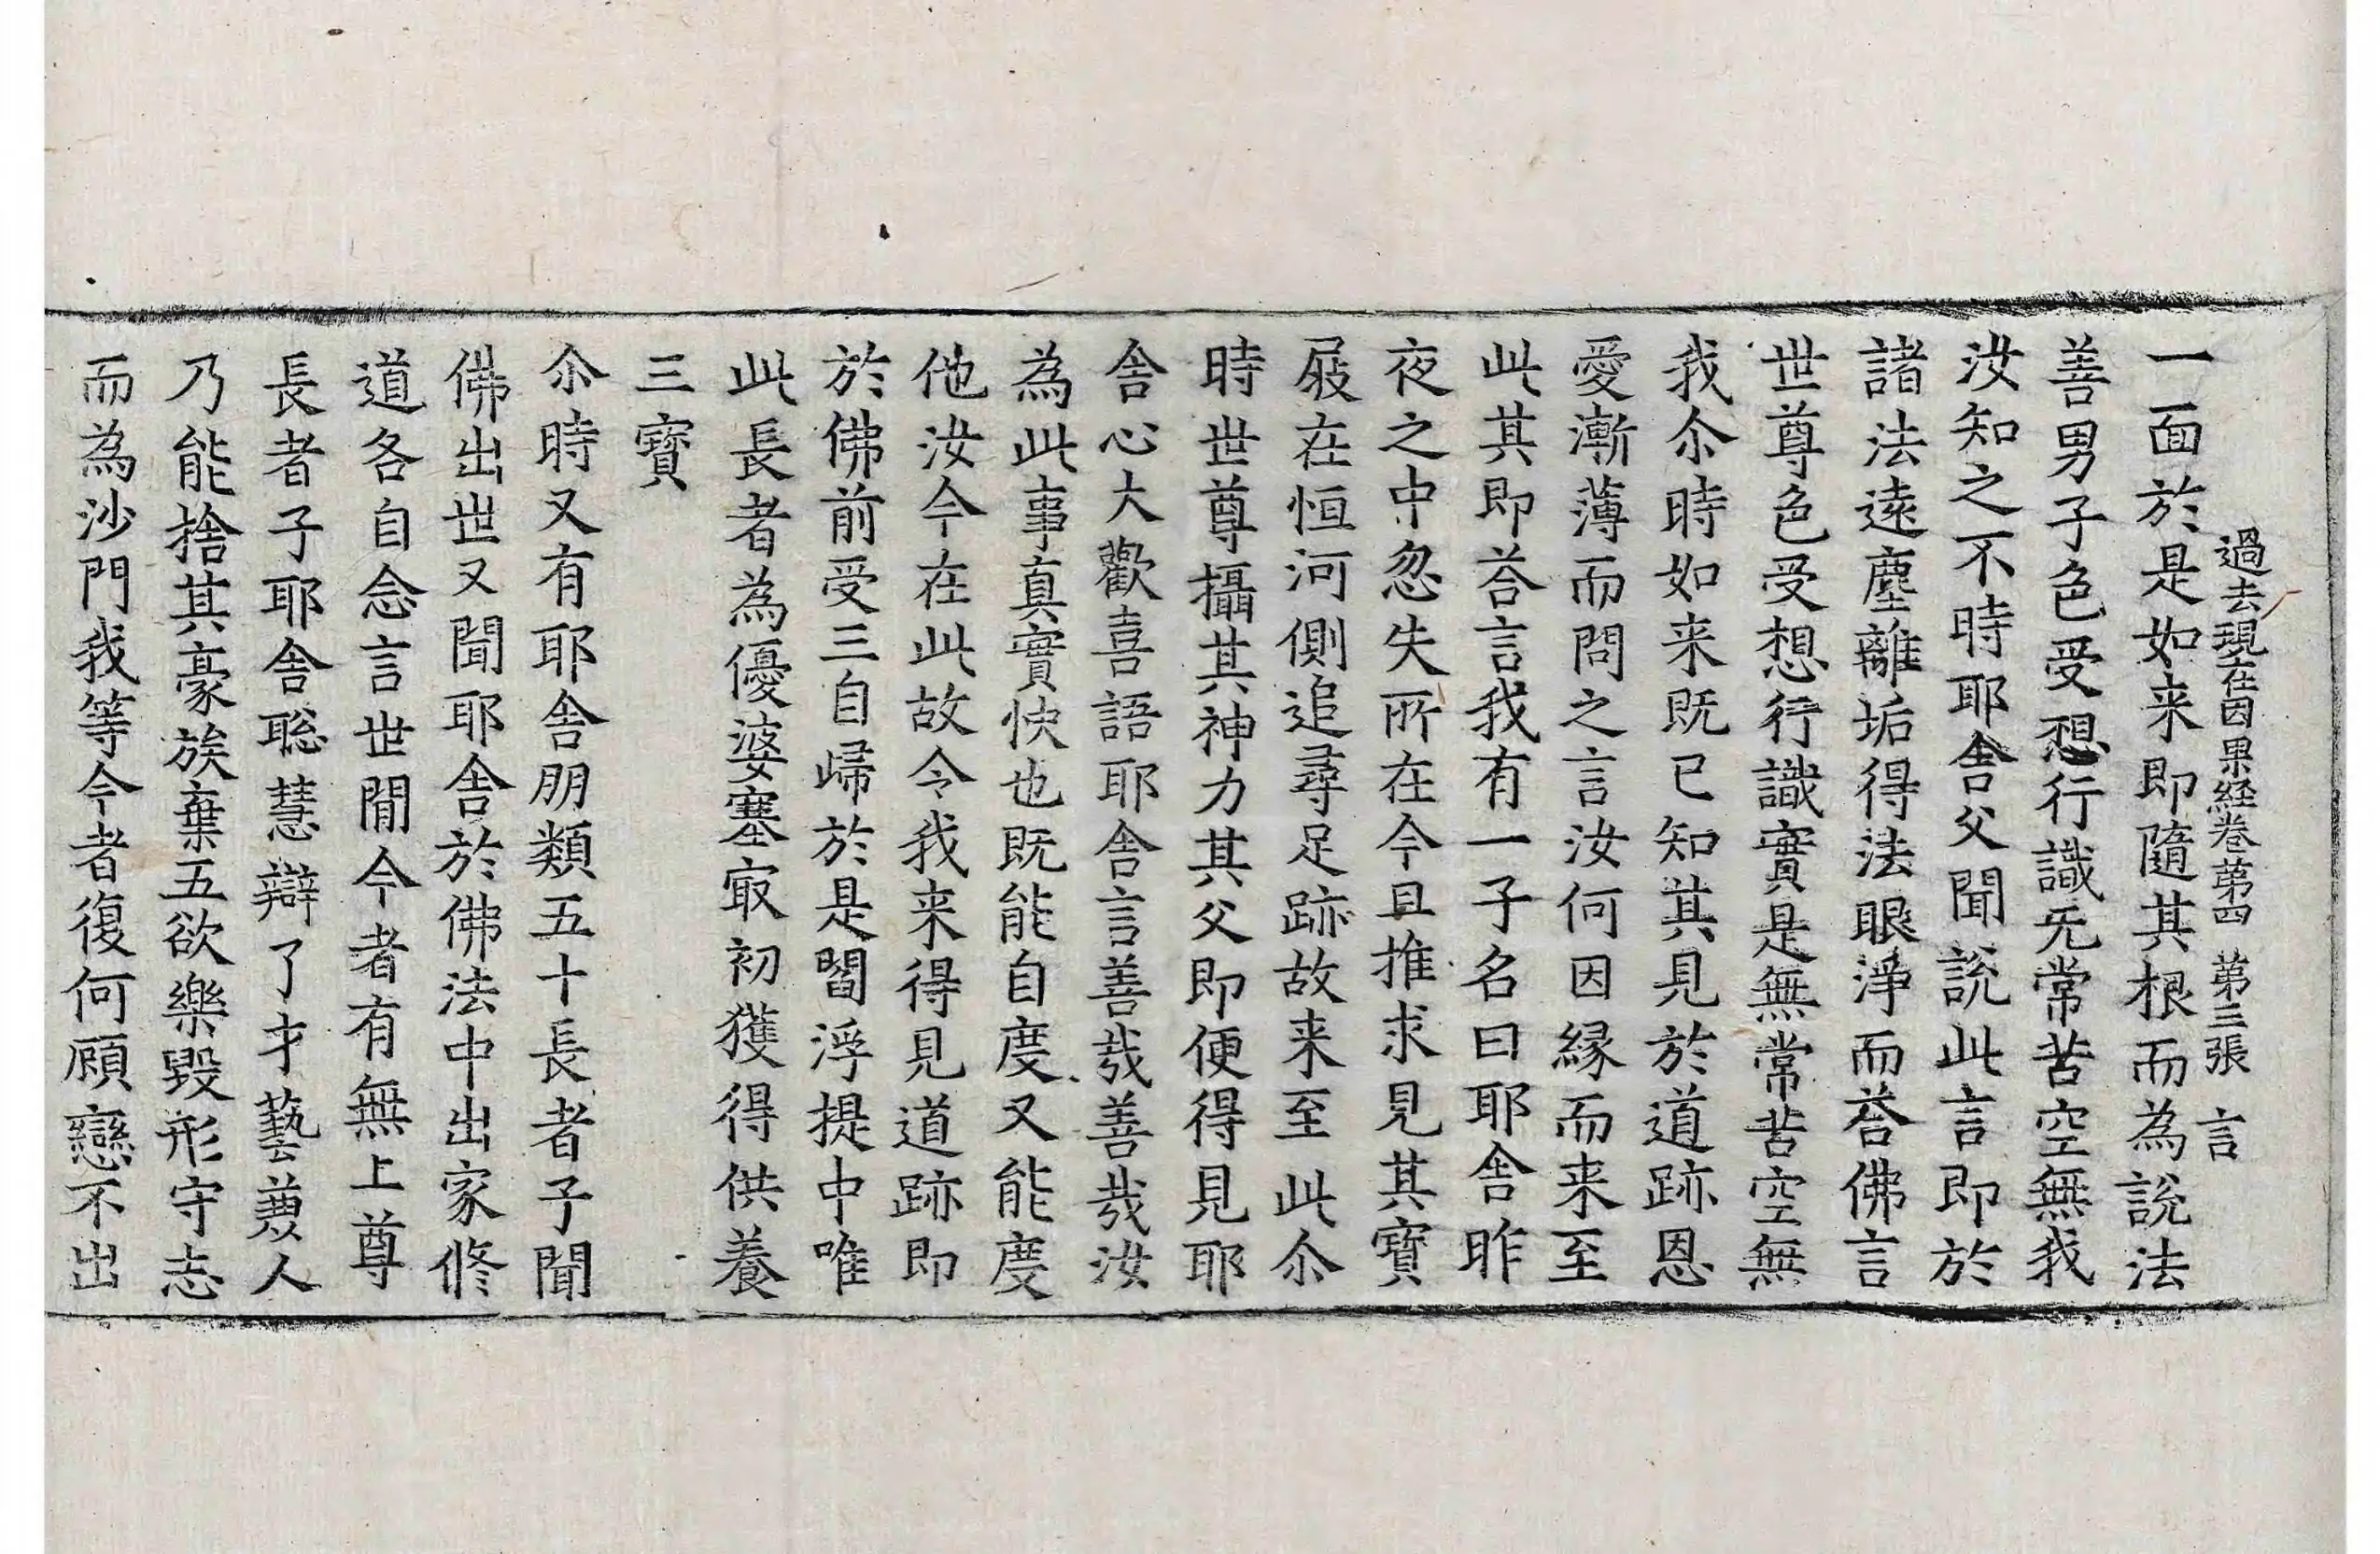 過去現在因果経卷第四 第三張 言
一面於是如来即隨其根而為說法
善男子色受想行識无常苦空無我
汝知之不時耶舍父聞說此言即於
諸法遠塵離垢得法眼淨而荅佛言
世尊色受想行識實是無常苦空無
我尒時如来既已知其見於道跡恩
愛漸薄而問之言汝何因緣而来至
此其即荅言我有一子名曰耶舍昨
夜之中忽失所在今旦推求見其寶
屐在恒河側追尋足跡故来至此尒
時世尊攝其神力其父即便得見耶
舍心大歡喜語耶舍言善哉善哉汝
為此事真實快也既能自度又能度
他汝今在此故令我来得見道跡即
於佛前受三自歸於是閻浮提中唯
此長者為優婆塞㝡初獲得供養
三寶
尒時又有耶舍朋類五十長者子聞
佛出世又聞耶舍於佛法中出家修
道各自念言世間今者有無上尊
長者子耶舍聡慧辯了才藝蒹人
乃能捨其豪族棄五欲樂毀形守志
而為沙門我等今者復何顧戀不出